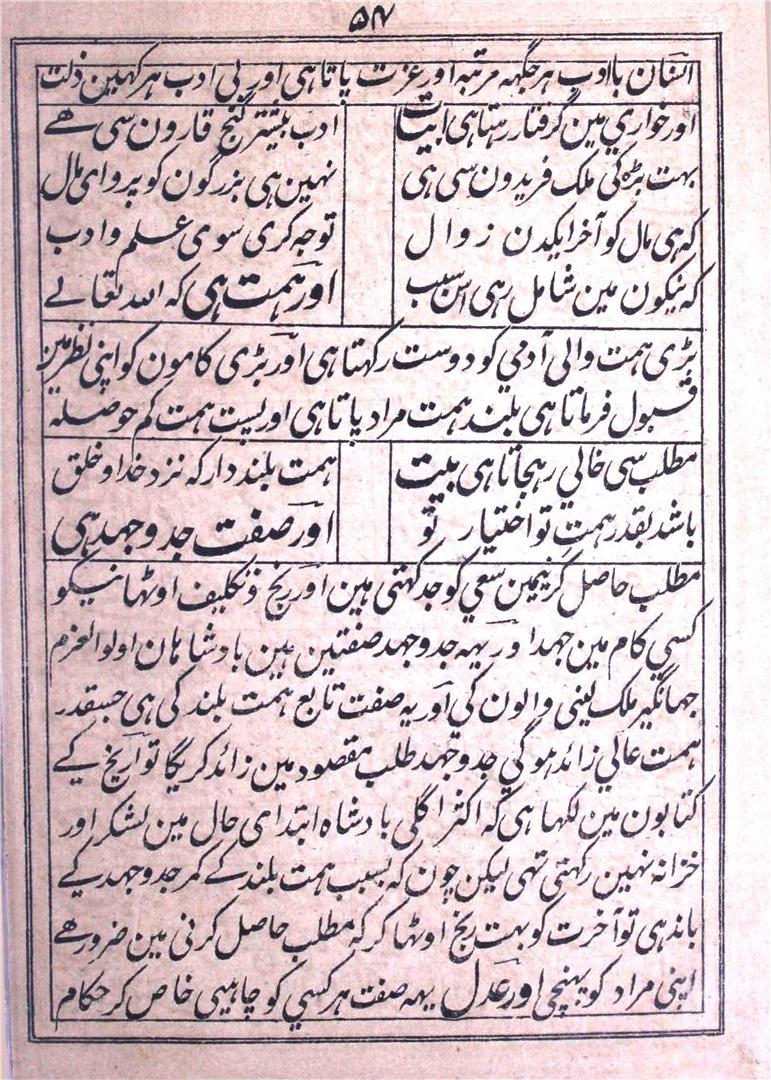 ۵۴
انسان باادب ہر جگہہ مرتبہ اور عزت پاتا ہی اور بی ادب ہر کہین ذلت
اور خواري مین گرفتار رہتا ہی ابیات ادب بیشتر گنج قارون سی ھے
بہت بڑہ کی ملک فریدون سی ہی نہین ہی بزرگون کو پروای مال
کہ ہی مال کو آخر ایکدن زوال توجہ کری سوی علم و ادب
کہ نیکون مین شامل رہی اس سبب اور ہمت ہی کہ اللہ تعالے
بڑی ہمت والی آدمي کو دوست رکہتا ہی اور بڑی کامون کو اپنی نظر مین
قبول فرماتا ہی بلند ہمت مراد پاتا ہی اور پست ہمت کم حوصلہ
مطلب سی خالي رہجاتا ہی بیت ہمت بلند دار کہ نزد خدا و خلق
باشد بقدر ہمت تو اختیار تو اور صفت جد و جہد ہی
مطلب حاصل کرنیمین سعي کو جد کہتی ہین اور رنج و تکلیف اوٹہانیکو
کسي کام مین جہد اور یہہ جد و جہد صفتین ہین بادشاہان اولوالعزم
جہانگیر ملک لینی والون کي اور یہ صفت تابع ہمت بلند کی ہی جسقدر
ہمت عالي زائد ہوگي جد و جہد طلب مقصود مین زائد کریگا تواریخ کے
کتابون مین لکہا ہی کہ اکثر اگلی بادشاہ ابتدای حال مین لشکر اور
خزانہ نہین رکہتی تہی لیکن چون کہ بسبب ہمت بلند کے کمر جد و جہد کے
باندہی تو آخرت کو بہت رنج اوٹہا کر کہ مطلب حاصل کرنی مین ضرور ھے
اپنی مراد کو پہنچی اور عدل یہہ صفت ہر کسي کو چاہیی خاص کر حکام